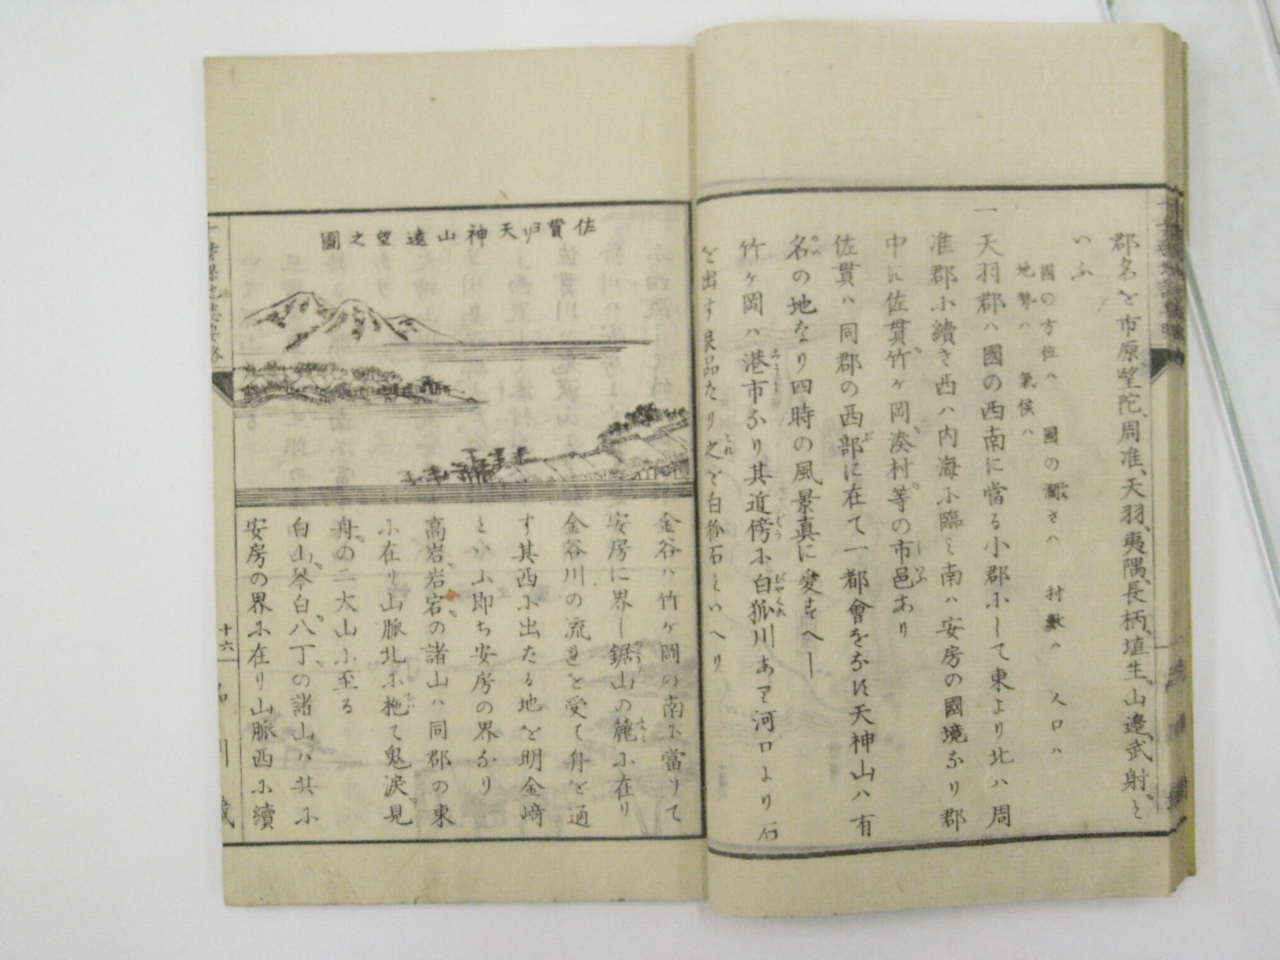 郡名を市原、望陀、周准、天羽、夷隅、長柄、埴生、山邊、武射と
いふ
國の方位ハ　國の廣さハ　村數ハ　人口ハ
地勢ハ　氣候ハ
一天羽郡ハ國の西南に當る小郡ふして東より北ハ周
准郡ふ續き西ハ内海ふ臨ミ南ハ安房の國境なり郡
中に佐貫、竹ヶ岡、湊村等の市邑あり
佐貫ハ同郡の西部に在て一都會をなす天神山ハ有
名の地なり四時の風景真に愛すへし
竹ヶ岡ハ港市なり其近傍ふ白狐川あり河口より石
を出す良品たり之を白狐石といへり
佐貫ヨリ天神山遠望之圖
金谷ハ竹ヶ岡の南ふ當りて
安房に界し鋸山の麓ふ在り
金谷川の流れを受て舟を通
す其西ふ出たる地を明金﨑
といふ即ち安房の界なり
高岩、岩宕の諸山ハ同郡の東
ふ在り山脈北ふ拖て鬼涙、見
舟の二大山ふ至る
白山、琴白、八丁の諸山ハ共ふ
安房の界ふ在り山脈西ふ續
十六